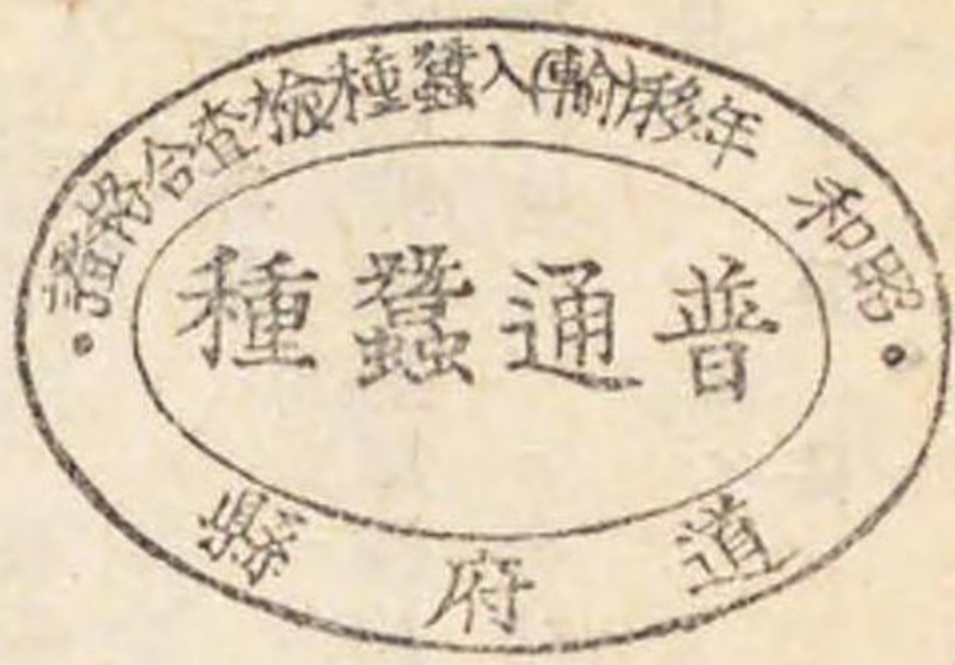 昭和 年移(輸)入蠶種檢査合格證
普通蠶種
道府縣